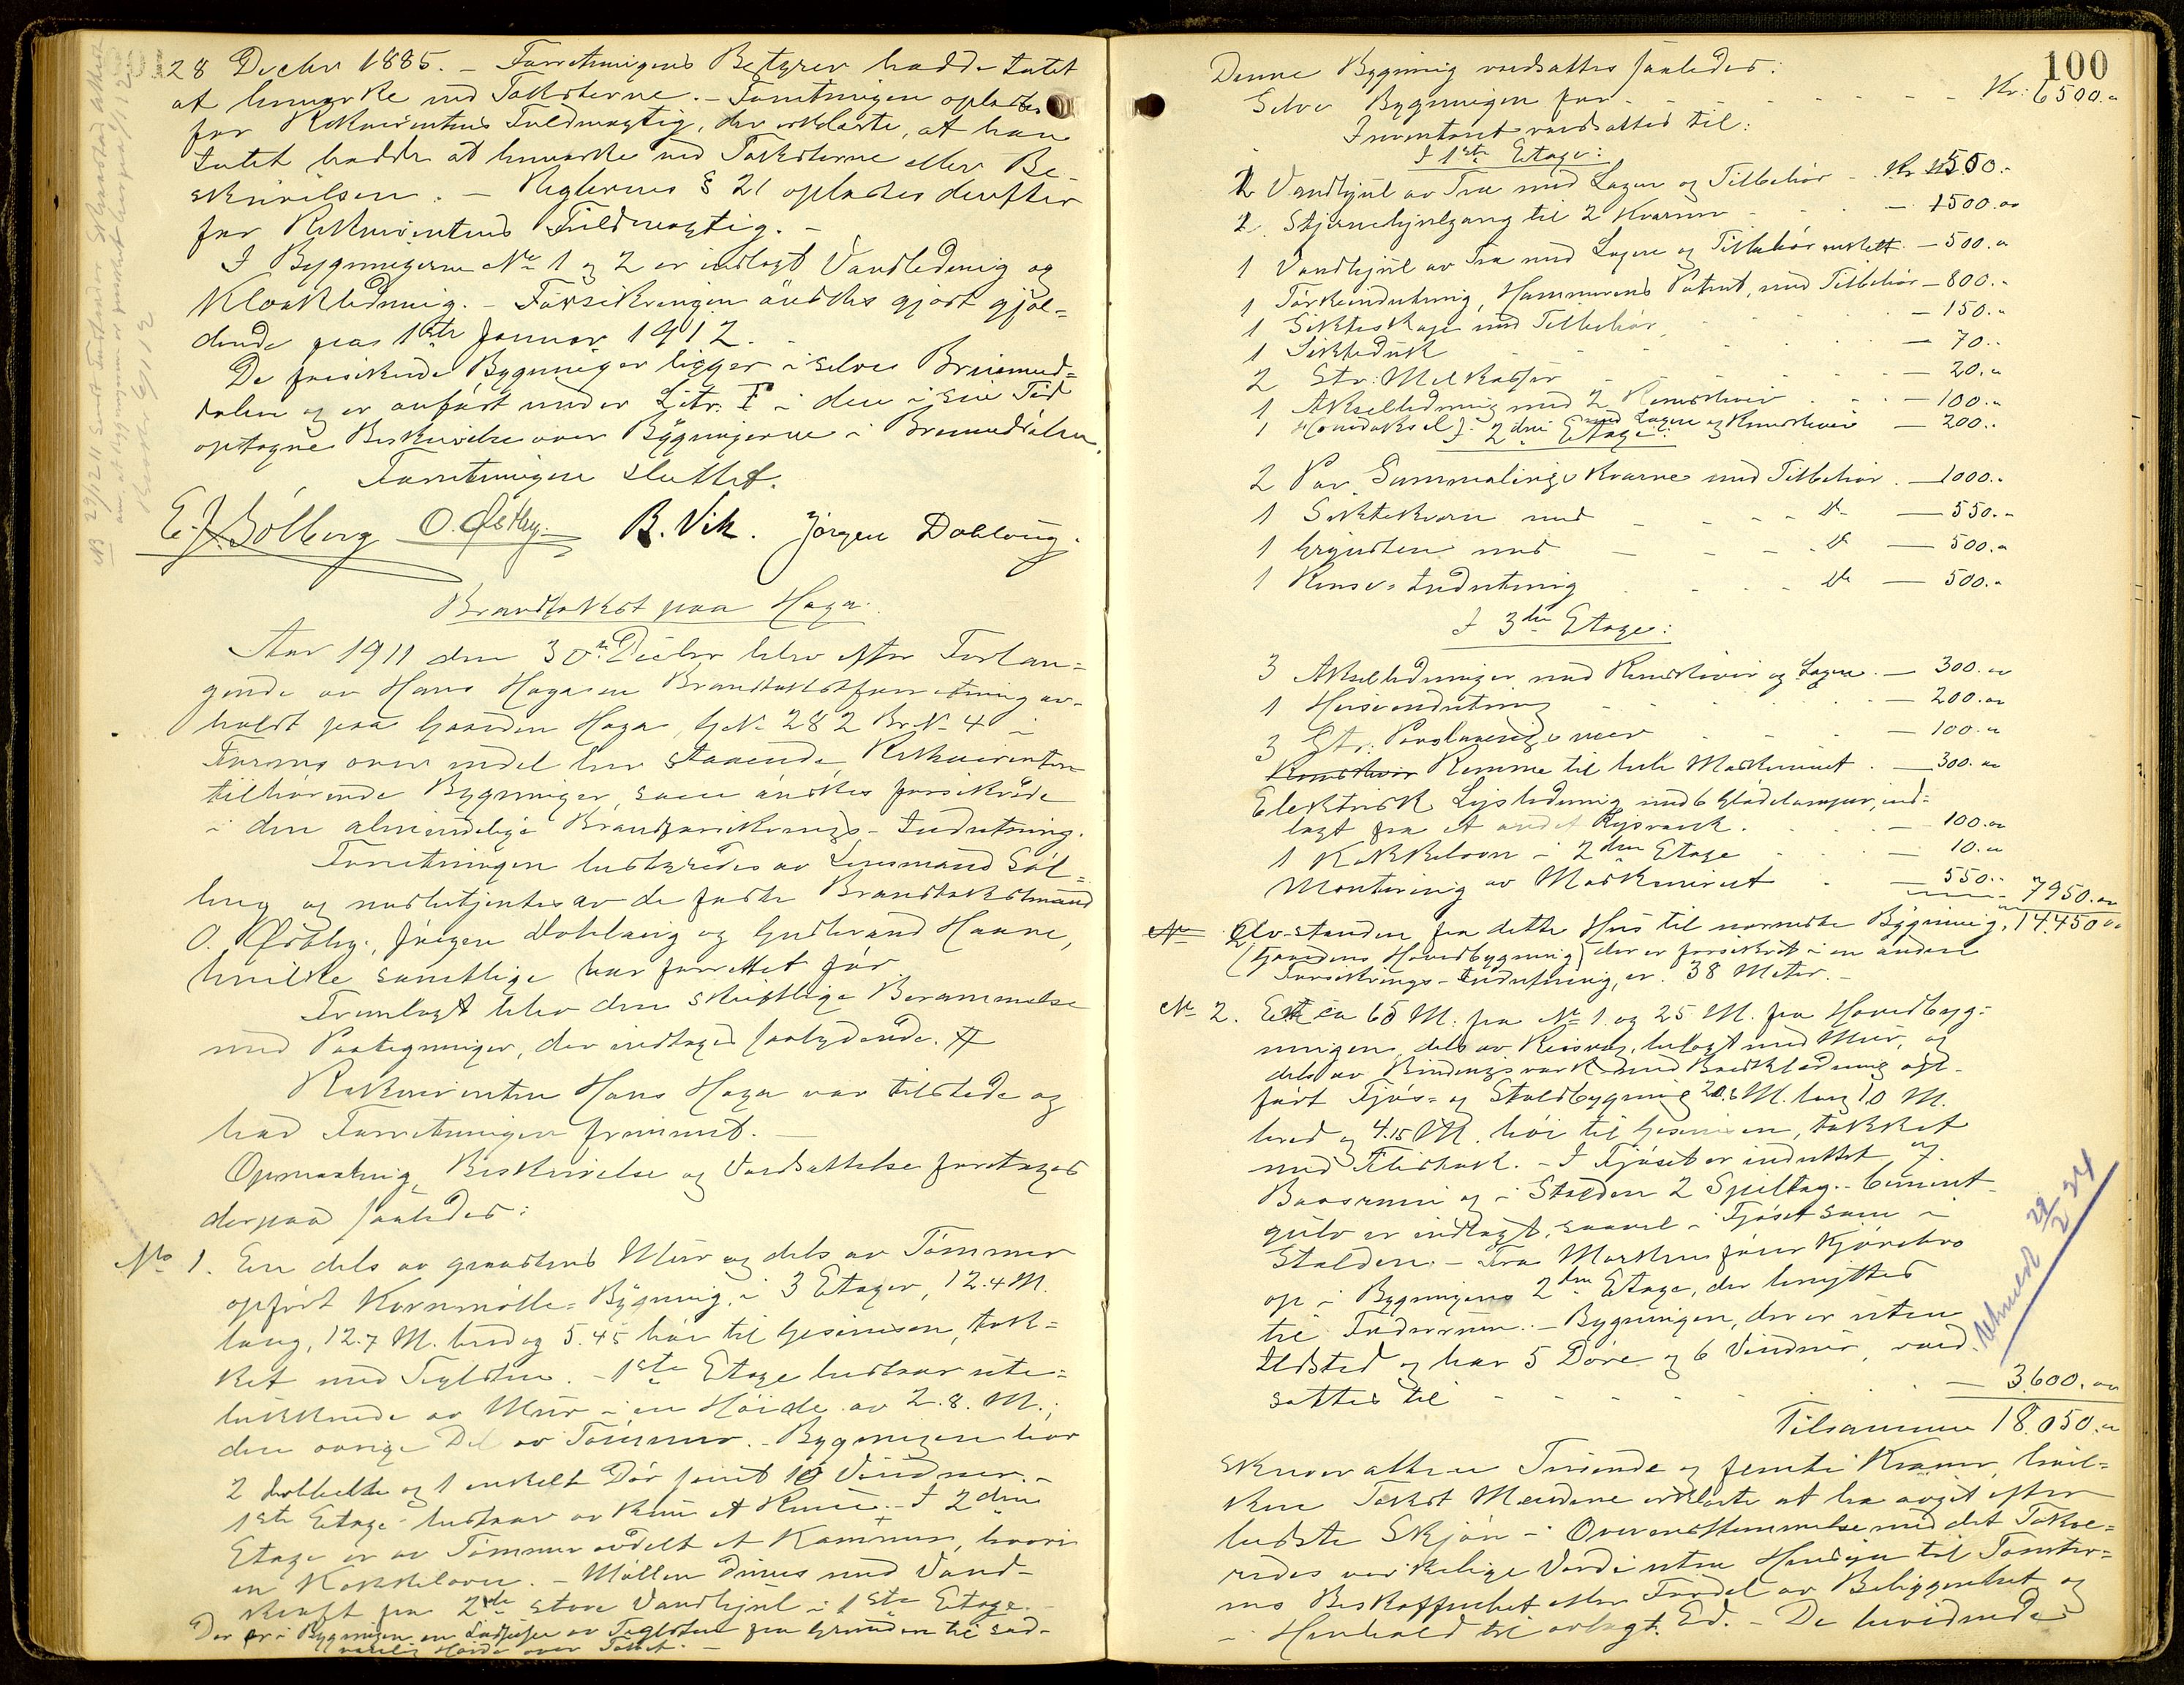 28 Decbr 1885. - Forretningens Bestyrer hadde intet
at bemerke ved Taksterne. - Forretningen oplæstes
for Rekvirentens Fuldmægtig, der erklærte, at han
intet hadde at bemerke ved Taksterne eller Be-
skrivelsen. - Reglernes § 21 oplæstes derefter
for Rekvirentens Fuldmægtig. -
I Bygningerne No 1 og 2 er indlagt Vandledning og
Kloakledning. - Forsikringen ønskes gjort gjæl-
dende fra 1ste Januar 1912. -
De forsikrede Bygninger ligger i selve Brumund-
dalen og er anført under Litr. F i den i sin Tid
optagne Beskrivelse over Bygningerne i Brumunddalen.
Forretningen sluttet.
E. J. Sølberg O. Østby. B. Vik. Jørgen Dobloug.
NB 29/12 11 sendt
Brandtakst paa Haga.
Aar 1911 den 30te Decbr blev efter Forlan-
gende av Hans Haga en Brandtakstforretning av-
holdt paa Gaarden Haga, G.No 282 Br.No 4 i
Furnes over endel her staaende, Rekvirenten
tilhørende Bygninger, som ønskes forsikrede
i den almindelige Brandforsikrings-Indretning.
Forretningen bestyredes av Lensmand Søl-
berg og medbetjentes av de faste Brandtakstmænd
O. Østby, Jørgen Dobloug og Gudbrand Haave,
hvilke samtlige har forrettet før.
Fremlagt blev den skriftlige Berammelse
med Paategninger, der indtages saalydende. #
Rekvirenten Hans Haga var tilstede og
bad Forretningen fremmet. -
Opmaaling, Beskrivelse og Værdsættelse foretages
derpaa saaledes:
No 1. En dels av graastens Mur og dels av Tømmer
opført Kornmølle-Bygning i 3 Etager, 12.4 M.
lang, 12.7 M. bred og 5.45 høi til Gesimsen, tæk-
ket med Teglsten. - 1ste Etage bestaar ute-
lukkende av Mur i en Høide av 2.8. M.;
den øvrige Del av Tømmer. - Bygningen har
2 dobbelte og 1 enkelt Dør samt 10 Vinduer. -
1ste Etage bestaar av kun et Rum. - I 2den
Etage er av Tømmer avdelt et Kammer, hvori
en Kakkelovn. - Møllen drives med Vand-
kraft fra 2de store Vandhjul i 1ste Etage. -
Der er i Bygningen en Ludpipe av Teglsten fra Grunden til sed-
vanlig Høide over Taket. -
100
Denne Bygning værdsættes saaledes:
Selve Bygningen for - - - Kr: 6500.-
Inventaret værdsættes til:
I 1ste Etage:
2 Vandhjul av Træ med Lagere og Tilbehør - Kr 1550.-
2 Stjernehjulgang til 2 Kværner - 1500.-
1 Vandhjul av Træ med Lagere og Tilbehør enkelt - 500.-
1 Tørkeindretning, Hammerens Patent, med Tilbehør - 800.-
1 Sikteskage med Tilbehør - 150.-
1 Sikteduk - 70.-
2 Str: Melkasser - 20.-
1 Akselledning med 2 Remskiver - 100.-
1 Hovedaksel med Lagere og Remskiver - 200.-
I 2den Etage:
2 Par Sammalings Kværne med Tilbehør. - 1000.-
1 Siktekværn med - - - do - 550.-
1 Grynsten med - - - do - 500.-
1 Rense-Indretning - - - do - 500.-
I 3die Etage:
3 Akselledninger med Remskiver og Lagere. - 300.-
1 Heiseindretning - 200.-
3 Str: - 100.-
Remskiver Remme til hele Maskineriet. - 300.-
Elektrisk Lysledning med 6 Glødelamper, ind-
lagt fra et andet Lysverk. - 100.-
1 Kakkelovn i 2den Etage - 10.-
Montering av Maskineriet - 550.- 7950.-
Avstanden fra dette Hus til nærmeste Bygning, 14.450.-
(Gaardens Hovedbygning) der er forsikret i en anden
Forsikrings-Indretning, er 38 Meter. -
No 2. Et ca 65 M. fra No 1. og 25 M. fra Hovedbyg-
ningen, dels av Reisverk, belagt med Mur, og
dels av Bindingsverk med Bordklædning op-
ført Fjøs- og Staldbygning 20.6 M. lang, 10 M.
bred og 4.15 M. høi til Gesimsen, tækket
med Flistak. - I Fjøset er indrettet 7
Baasrum og i Stalden 2 Spiltaug. - Cement-
gulv er indlagt, saavel i Fjøset som i
Stalden. - Fra Marken fører Kjørebro
op i Bygningens 2den Etage, der benyttes
til Foderrum. - Bygningen, der er uten
Ildsted og har 5 Døre og 6 Vinduer, værd-
sættes til - - - 3600.-
Utmeldt 29/2 24
Tilsammen 18.050.-
skriver atten Tusinde og femti Kroner, hvil-
ken Takst Mændene erklærte at ha avgit efter
bedste Skjøn i Overensstemmelse med det Takse-
redes virkelige Værdi uten Hensyn til Tomter-
nes Beskaffenhet eller Fordel av Beliggenhet og
i Henhold til avlagt Ed. - De bevidnede